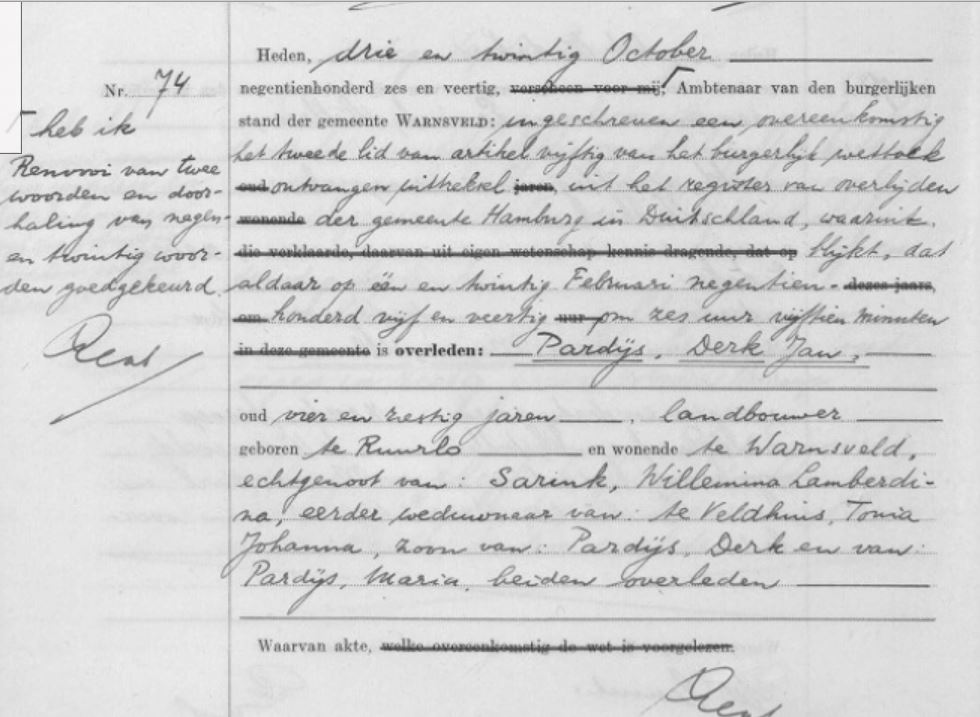 Heden, drie en twintig October
Nr. 74
negentienhonderd zes en veertig, verscheen voor mij, Ambtenaar van den burgerlijken
stand der gemeente WARNSVELD: ingeschreven een overeenkomstig
het tweede lid van artikel vijftig van het burgerlijk wetboek
oud ontvangen uittreksel jaren, uit het register van overlijden
wonende der gemeente Hamburg in Duitschland, waaruit
die verklaarde, daarvan uit eigen wetenschap kennis dragende, dat op blijkt, dat
aldaar op één en twintig Februari negentien- dezes jaars,
om honderd vijf en veertig uur om zes uur vijftien minuten
in deze gemeente is overleden: Pardijs, Derk Jan,
oud vier en zestig jaren, landbouwer
geboren te Ruurlo en wonende te Warnsveld,
echtgenoot van: Sarink, Willemina Lamberdi-
na, eerder weduwnaar van: te Veldhuis, Tonia
Johanna, zoon van: Pardijs, Derk en van:
Pardijs, Maria, beiden overleden
Waarvan akte, welke overeenkomstig de wet is voorgelezen.
heb ik
Renvooi van twee
woorden en door-
haling van negen-
en twintig woor-
den goedgekeurd.